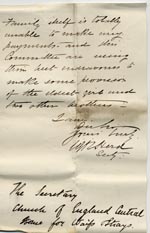 Family itself is totally
unable to make any
payments and this
Committee are using
their best endeavours to
make some provision
of the eldest girl and
two other brothers
I am
Yours truly
Secty
The Secretary
Church of England Central
Home for Waifs Strays.